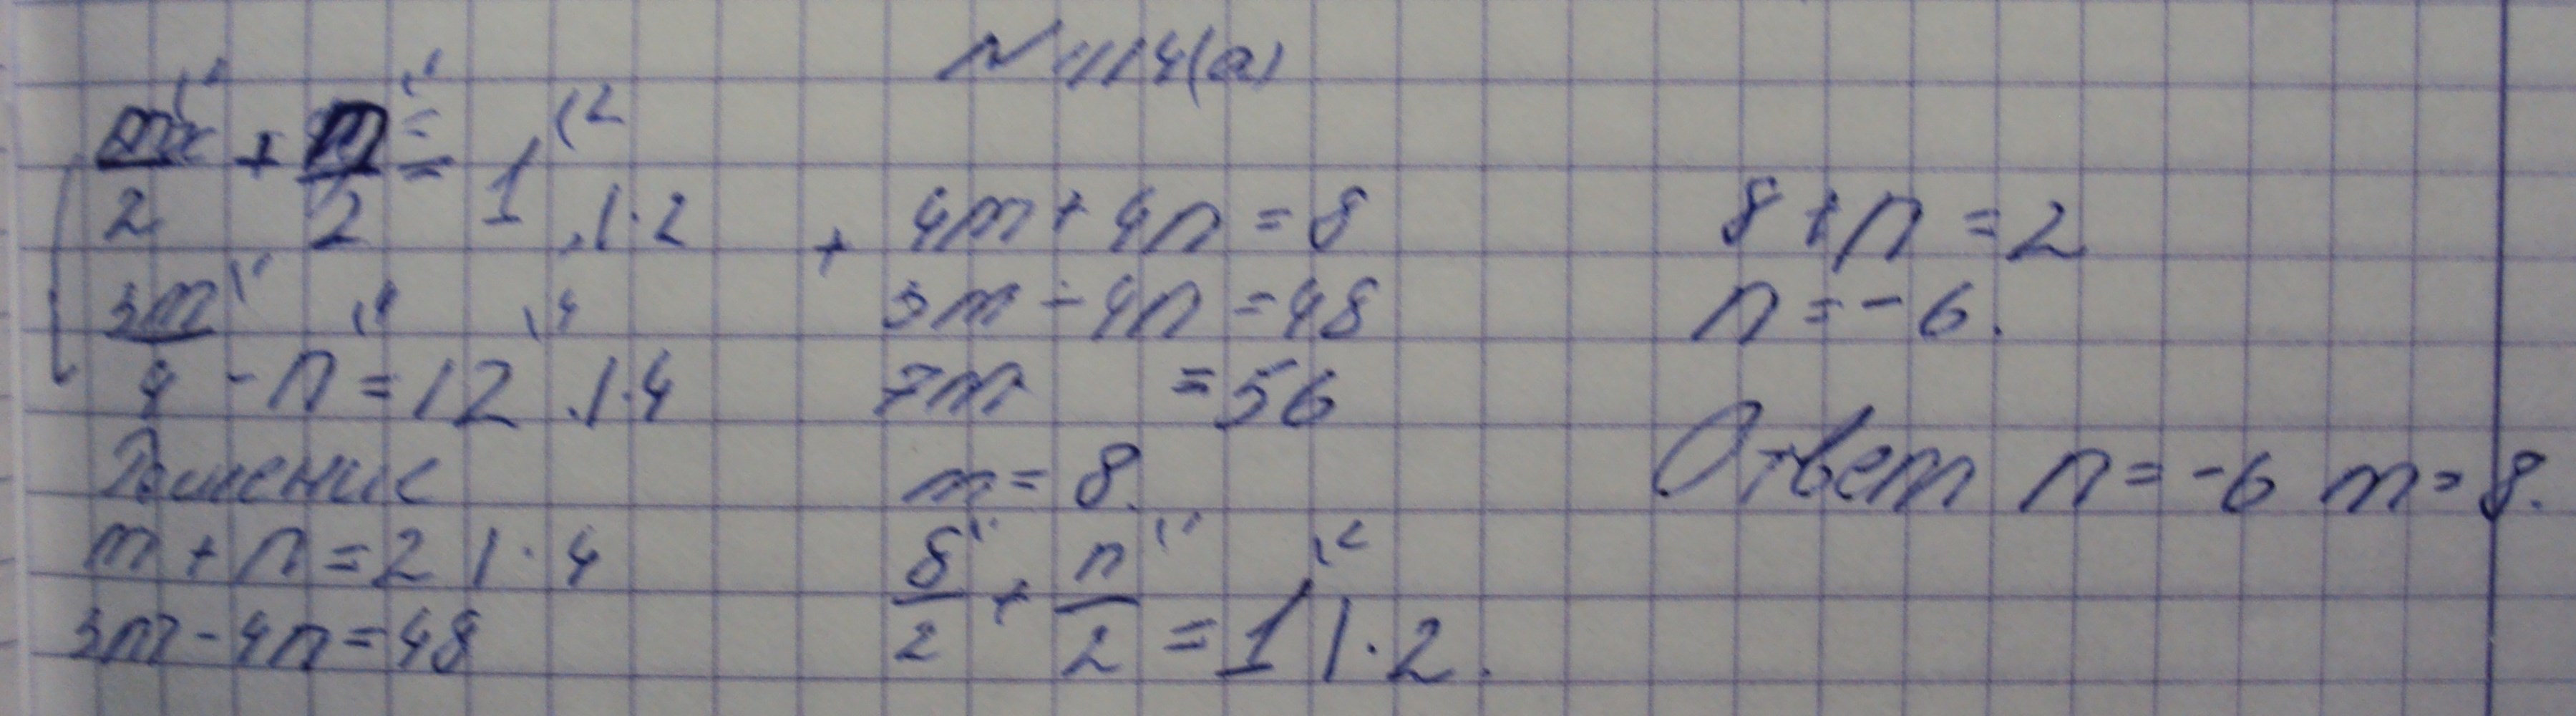 N 1114(а)
m/2 + n/2 = 1 |·2
3m/4 - n = 12 |·4
Решение
m + n = 2 |·4
3m - 4n = 48
+ 4m + 4n = 8
3m - 4n = 48
7m = 56
m = 8.
8/2 + n/2 = 1 |·2.
8 + n = 2
n = -6.
Ответ n = -6 m = 8.